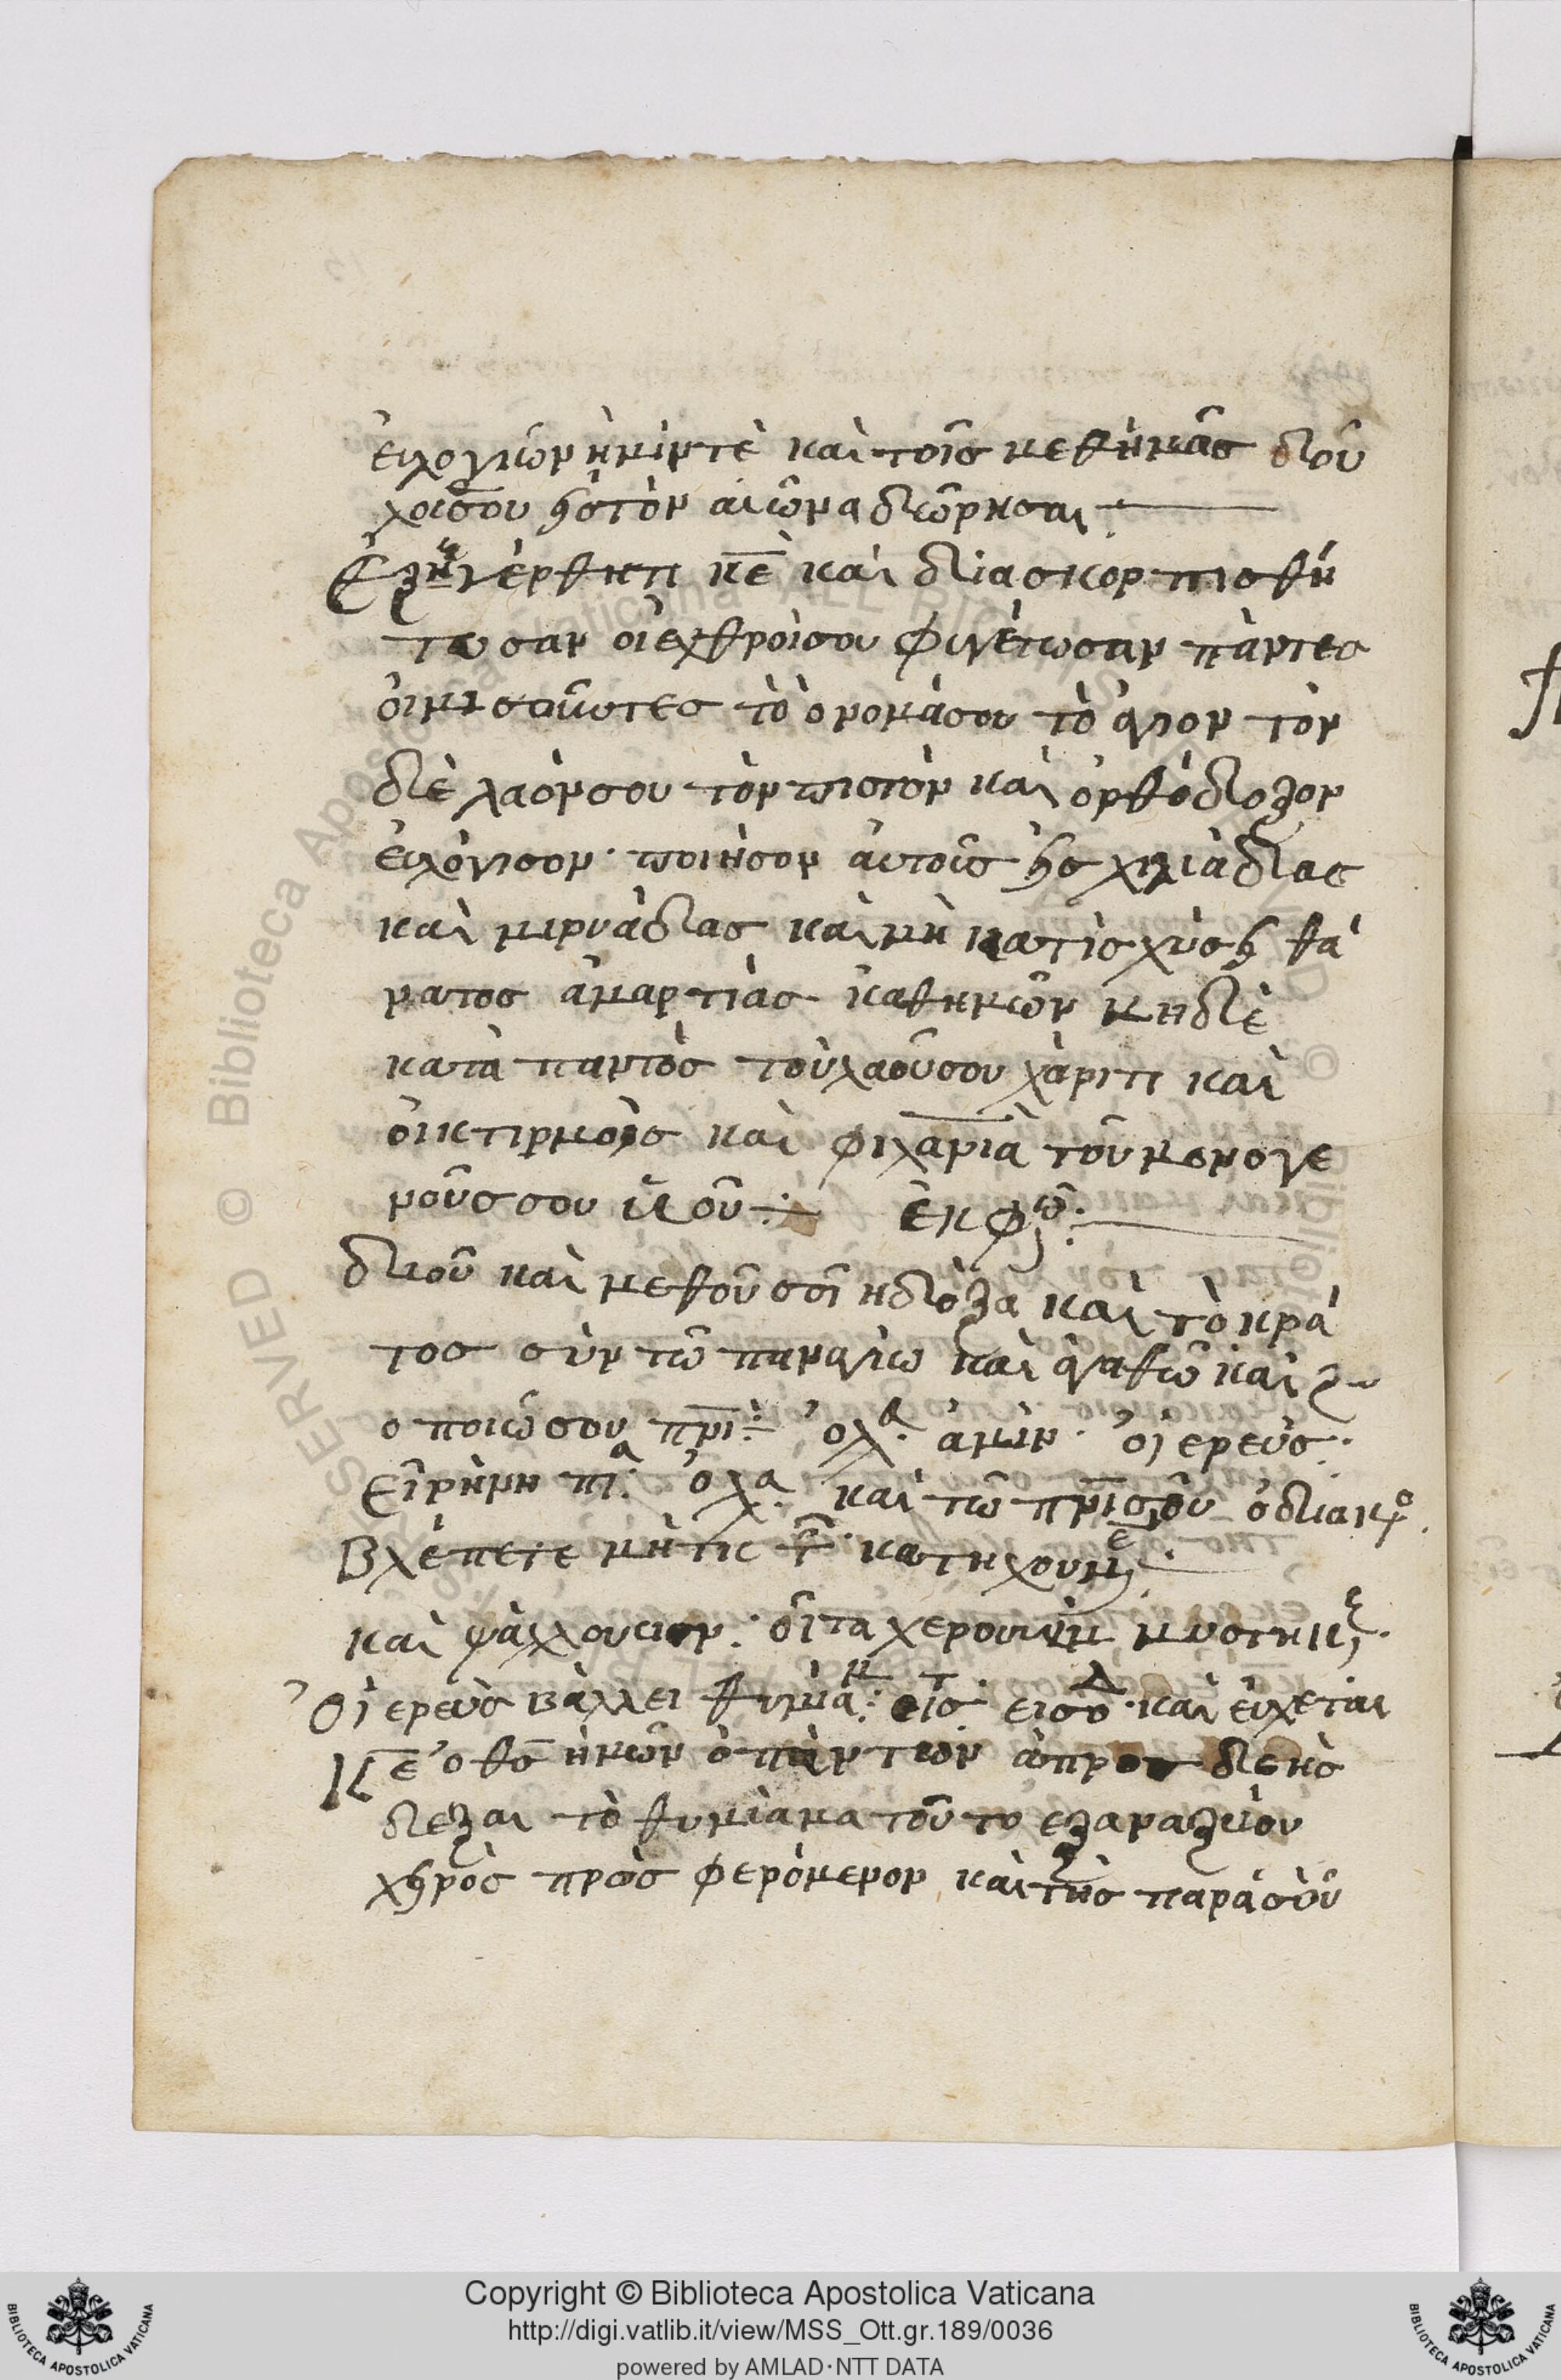 εὐλογιῶν ἡμίν τὲ καὶ τοῖς μεθημᾶς δϊοῦ
χϋ σου εἰς τὸν αἰῶνα δώρησαι
Ἐξηγέρθητι κ̅ε̅ καὶ διασκορπισθή
τωσαν οἱ ἐχθροίσου φυγέτωσαν πάντες
οἱ μισοῦντες τὸ ὄνομάσου τὸ ἅγιον τὸν
δὲ λαόνσου τὸν πιστὸν καὶ ὀρθόδοξον
εὐλόγισον· ποιήσον αὐτοὺς εἰς χιλιάδας
καὶ μιρυάδας καὶ μὴ κατισχύσει θά
νατος ἁμαρτίας καθημῶν μηδὲ
κατὰ παντὸς τοῦ λαοῦσου χάριτι καὶ
οἰκτιρμοῖς καὶ φιλα̅ν̅ία τοῦ μονογε
νοῦς σου ϋἱοῦ ÷ ἐκφω̑:
διοῦ καὶ μεθοῦ σοῖ ἡ δόξα καὶ τὸ κρά
τος σὺν τῶ παναγίω καὶ ἀγαθῶ καὶ ζω
οποιῶ σου π̅ν̅ι÷ ὁ λα· ἀμήν· ὁ ἱερεύς·
Εἰρήνη πα· ὁ λα· καὶ τῶ π̅ν̅ι σοῦ ὁ διακο
Βλέπετε μὴτις τῶ· κατηχουμε
καὶ ψάλλουσιν· οἷ τα χερουβὶμ μυστικ
Ὁ ἱερεὺς βάλλει θυμίαμ: εἰς τ εισοδ· καὶ εὔχεται
Κ̅ε̅ ὁ θ̅ς̅ ἡμῶν ὁ πάντων ἀπροσδεὴς
δέξαι τὸ θυμίαμα τοῦτο ἐξ ἀναξίου
χειρὸς πρὸς φερόμενον καὶ τῆς παρὰ σοῦ
Copyright © Biblioteca Apostolica Vaticana
http://digi.vatlib.it/view/MSS_Ott.gr.189/0036
powered by AMLAD·NTT DATA